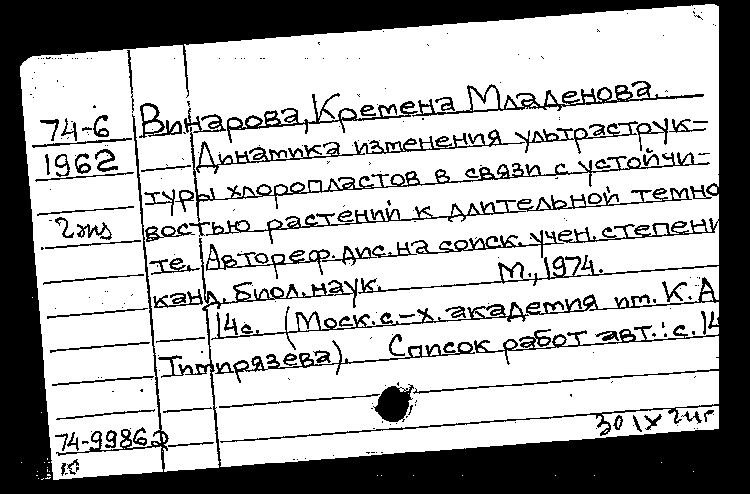 74-6 Винарова, Кремена Младенова.
1962 Динамика изменения ультраструк=
туры хлоропластов в связи с устойчи=
2 экз востью растений к длительной темно
те. Автореф. дис. на соиск. учен. степени
канд. биол. наук. М., 1974.
14с. (Моск. с.-х. академия им. К.А
Тимирязева). Список работ авт.: с. 14
74-99862
10